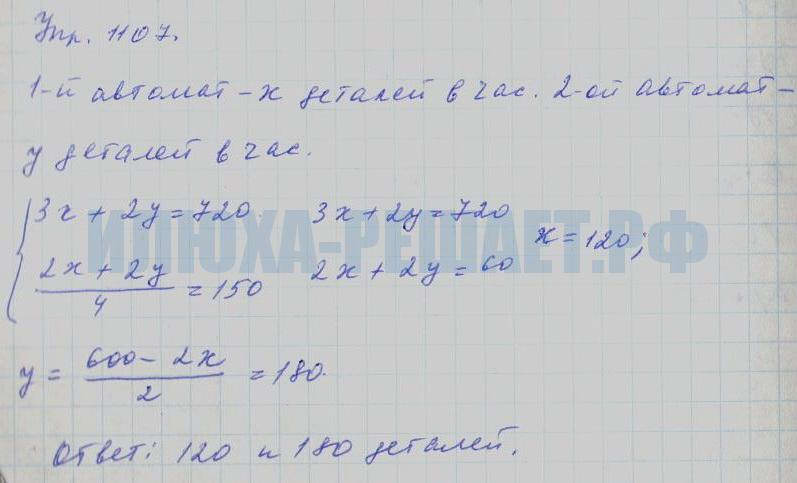 Упр. 1107.
1-й автомат - x деталей в час. 2-ой автомат -
y деталей в час.
3x + 2y = 720 3x + 2y = 720
(2x + 2y)/4 = 150 2x + 2y = 60 x = 120;
y = (600 - 2x)/2 = 180.
Ответ: 120 и 180 деталей.
ИЛЮХА-РЕШАЕТ.РФ